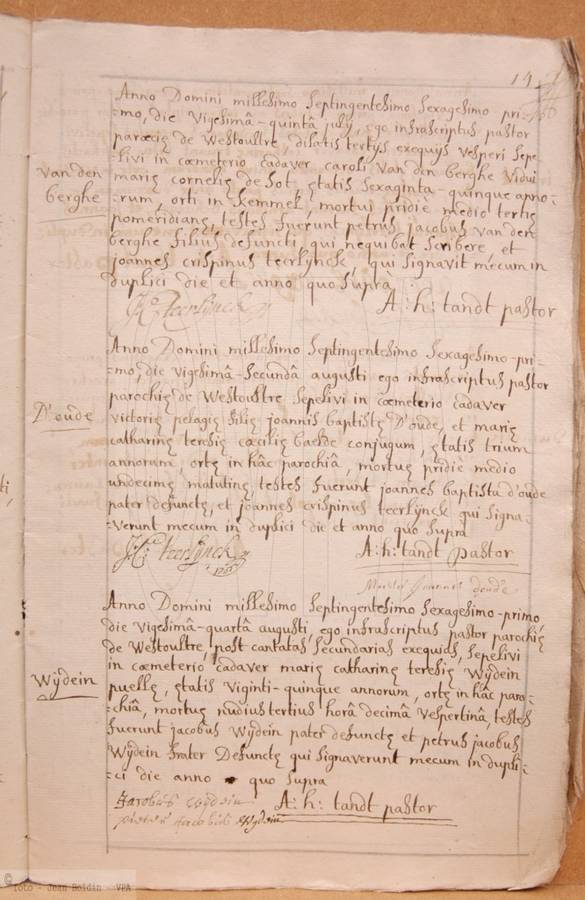 14
Anno Domini millesimo septingentesimo sexagesimo pri-
mo, die vigesimâ-quintâ julij, ego infrascriptus pastor
parœciȩ de Westoultre, dilatis tertijs exequijs vesperi sepe-
livi in cœmeterio cadaver caroli Van den berghe vidui
Van den
mariȩ corneliȩ de Sot, ȩtatis sexaginta-quinque anno-
berghe
rum, orti in Kemmel, mortui pridiè medio tertiȩ
pomeridianȩ, testes fuerunt petrus jacobus van den
berghe filius defuncti, qui nequibat scribere et
joannes crispinus teerlynck, qui signavit mecum in
duplici die et anno quo suprà
J: C: teerlynck
A: h: tandt pastor
Anno Domini millesimo septingentesimo sexagesimo-pri-
mo, die vigesimâ-secundâ augusti ego infrascriptus pastor
parochiȩ de Westoultre sepelivi in cœmeterio cadaver
D'oude
victoriȩ pelagiȩ filiȩ joannis baptistȩ D'oude, et mariȩ
catharinȩ teresiȩ cæciliȩ baelde conjugum, ȩtatis trium
annorum, ortȩ in hâc parochiâ, mortuȩ pridiè medio
undecimȩ matutinȩ testes fuerunt joannes baptista d'oude
pater defunctȩ, et joannes crispinus teerlynck qui signa-
verunt mecum in duplici die et anno quo supra
J: C: teerlynck
1761
A: h: tandt pastor
joannes doude
Anno Domini millesimo septingentesimo sexagesimo-primo
die vigesimâ-quartâ augusti, ego infrascriptus pastor parochiȩ
de Westoultre, post cantatas secundarias exequias, sepelivi
in cœmeterio cadaver mariȩ catharinȩ teresiȩ Wÿdein
Wÿdein
puellȩ, ȩtatis viginti-quinque annorum, ortȩ in hâc paro-
chiâ, mortuȩ nudiustertius horâ decimâ vespertinâ, testes
fuerunt jacobus Wÿdein pater defunctȩ et petrus jacobus
Wÿdein frater Defunctȩ qui signaverunt mecum in dupli-
ci die anno quo supra
Jacobus wijdein
A: h: tandt pastor
pieter jacobus wijdein
© foto - Jean Boidin - VPA